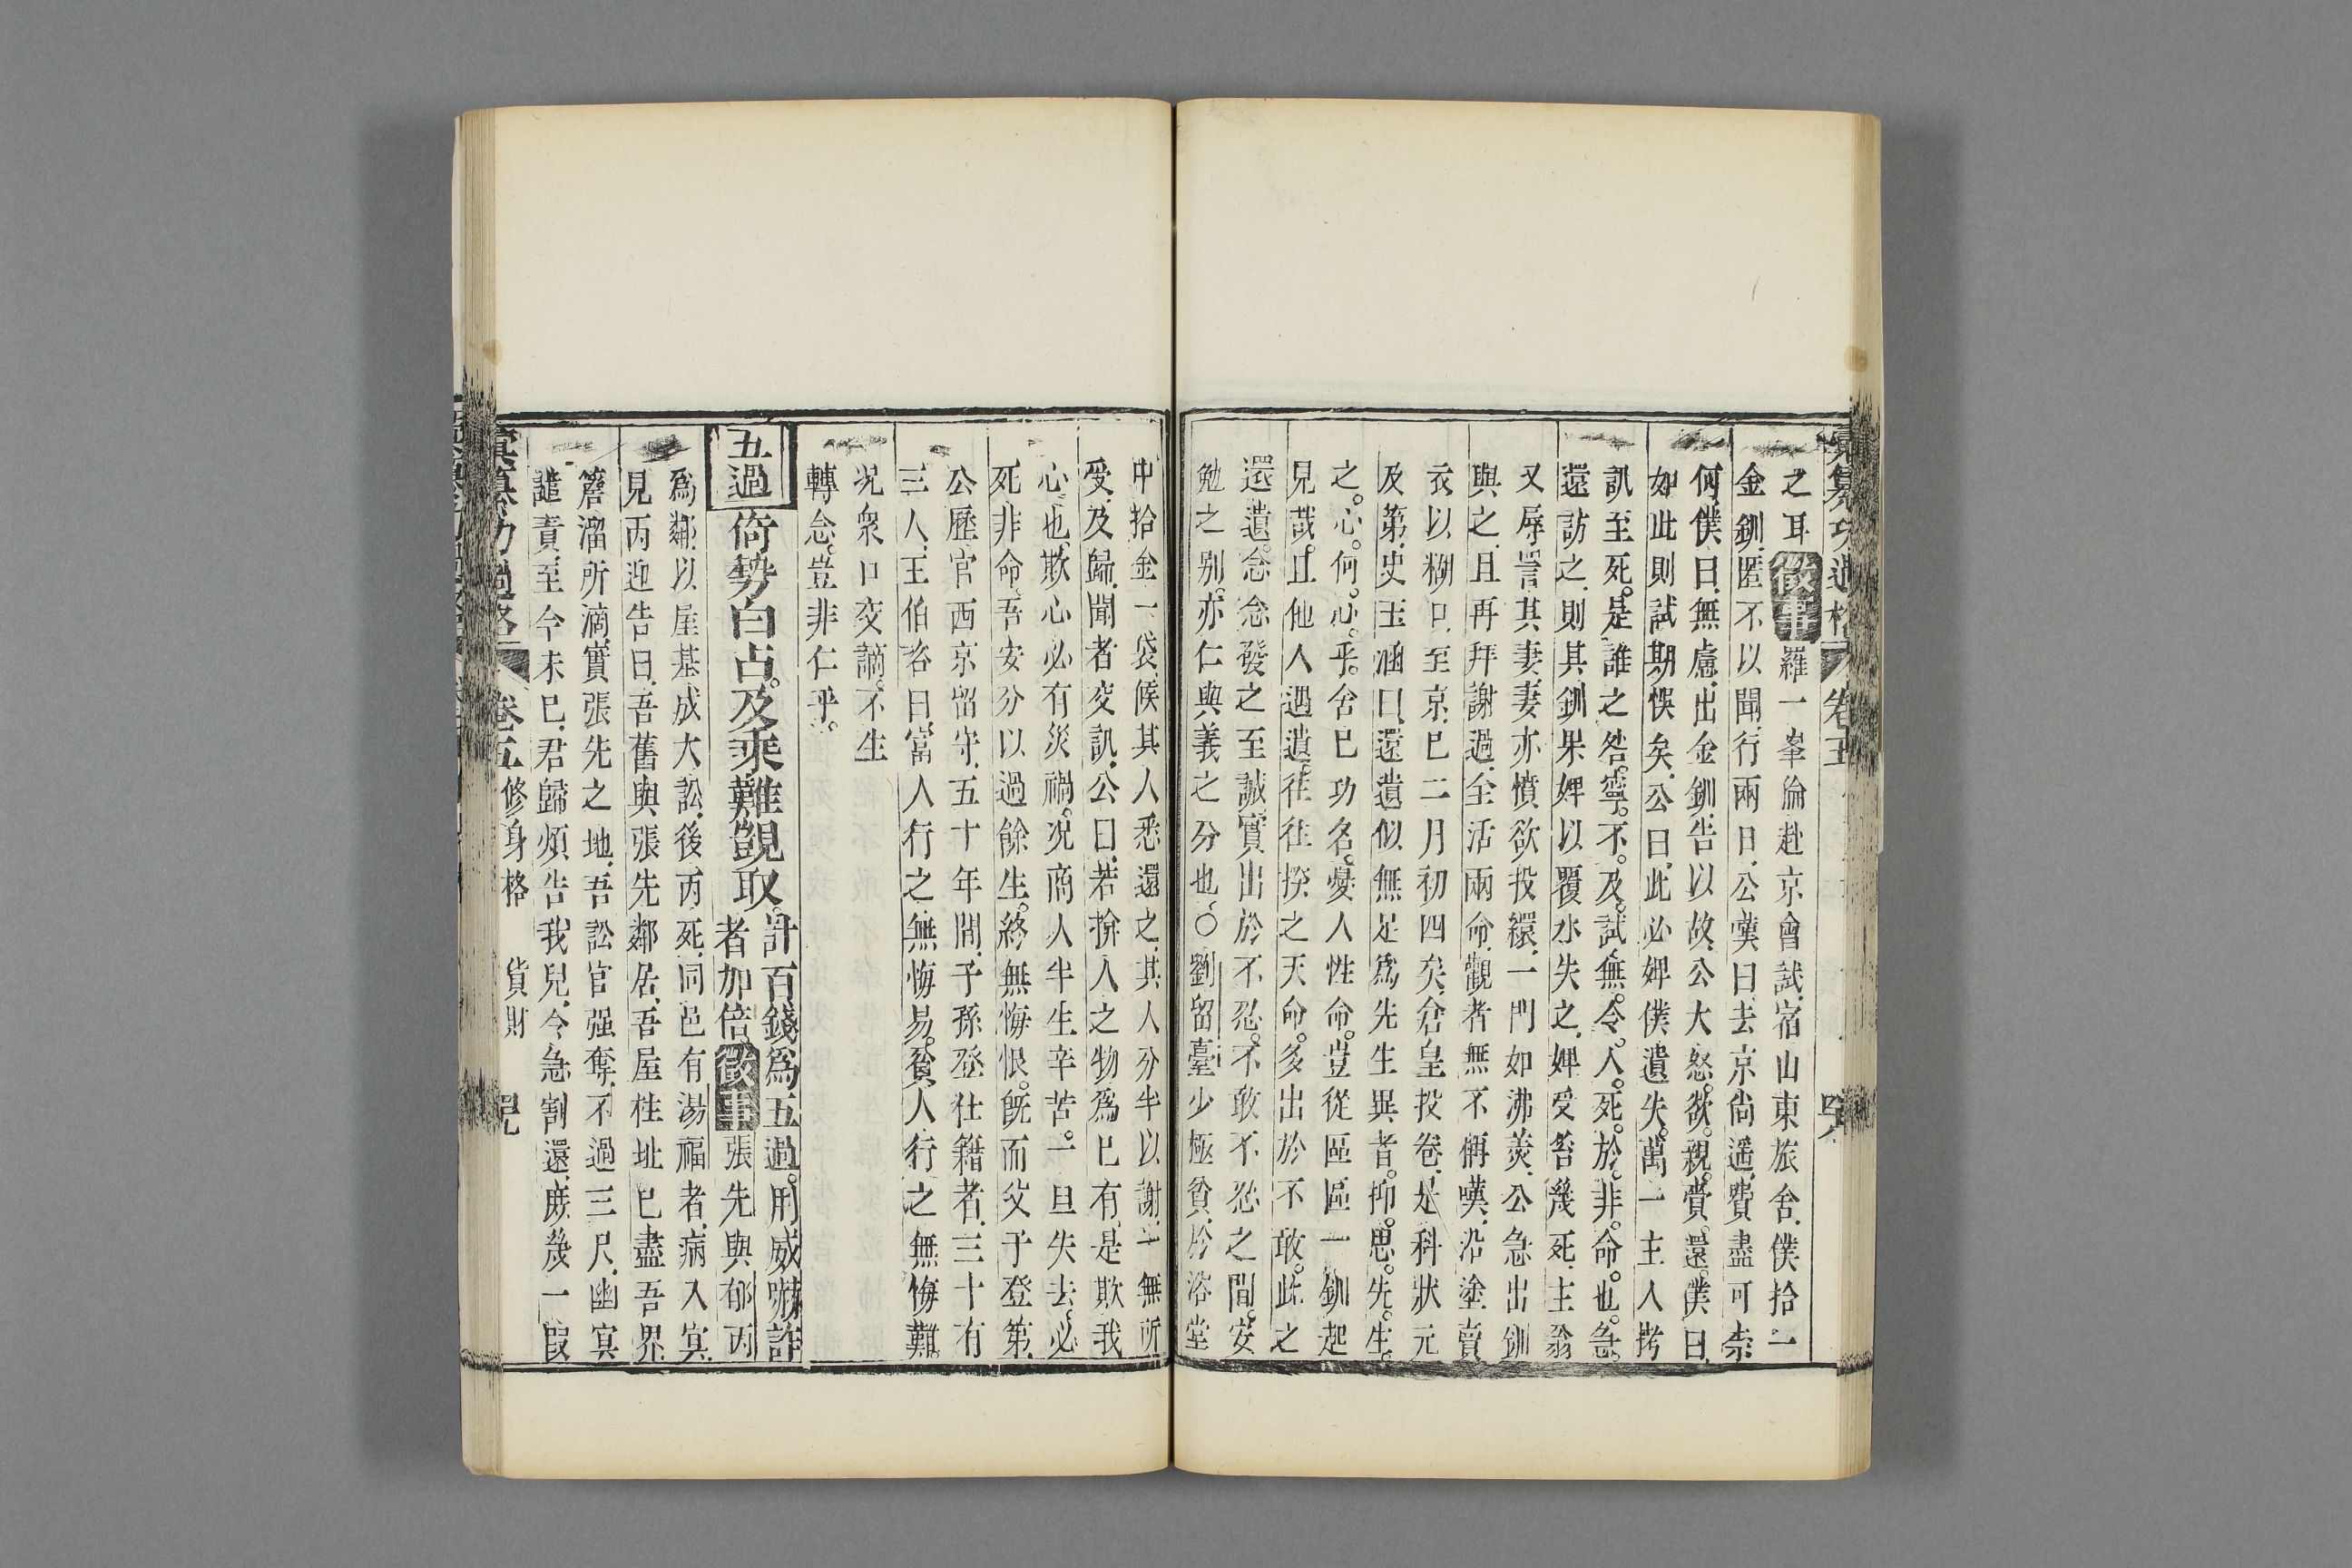 彙纂功過格 卷五
之耳徵事羅一峯倫赴京會試宿山東旅舍僕拾一
金釧匿不以聞行兩日公嘆曰去京尚遥費盡可柰
何僕曰無慮出金釧告以故公大怒欲親賫還僕曰
如此則試期悞矣公曰此必婢僕遺失萬一主人拷
訊至死是誰之咎寧不及試無令人死於非命也急
還訪之則其釧果婢以覆水失之婢受笞幾死主翁
又辱詈其妻妻亦憤欲投繯一門如沸羮公急出釧
與之且再拜謝過全活兩命觀者無不稱嘆沿塗賣
衣以糊口至京已二月初四矣倉皇投卷是科狀元
及第史玉涵曰還遺似無足爲先生異者抑思先生
之心何心乎舍已功名憂人性命豈從區區一釧起
見哉且他人遇遺往往揆之天命多出於不敢此之
還遺念念發之至誠實出於不忍不敢不忍之間安
勉之别亦仁與義之分也○劉留臺少極貧於浴堂
中拾金一袋候其人悉還之其人分半以謝一無所
受及歸聞者交訊公曰若揜人之物爲已有是欺我
心也欺心必有災禍况商人半生辛苦一旦失去必
死非命吾安分以過餘生終無悔恨旣而父子登第
公歷官西京留守五十年間子孫登仕籍者三十有
三人王伯咨曰富人行之無悔易貧人行之無悔難
况衆口交謫不生
轉念豈非仁乎
五過倚勢白占及乘難覬取計百錢爲五過用威嚇詐
者加倍徵事張先與郁丙
爲鄰以屋基成大訟後丙死同邑有湯福者病入冥
見丙迎告曰吾舊與張先鄰居吾屋柱址已盡吾界
簷溜所滴實張先之地吾訟官强奪不過三尺幽冥
譴責至今未已君歸煩告我兒令急割還庶幾一叚
彙纂功過格 卷五 修身格 貨財